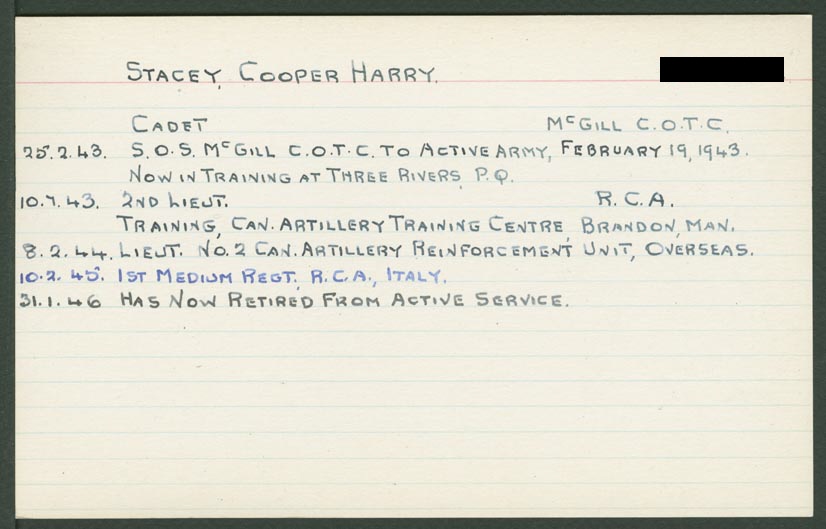 STACEY, COOPER HARRY.
CADET McGILL C.O.T.C.
25.2.43. S.O.S. McGILL C.O.T.C. TO ACTIVE ARMY, FEBRUARY 19, 1943.
NOW IN TRAINING AT THREE RIVERS, P.Q.
10.7.43. 2ND LIEUT. R.C.A.
TRAINING, CAN. ARTILLERY TRAINING CENTRE, BRANDON, MAN.
8.2.44. LIEUT. NO.2 CAN. ARTILLERY REINFORCEMENT UNIT, OVERSEAS.
10.2.45. 1ST MEDIUM REGT. R.C.A., ITALY.
31.1.46 HAS NOW RETIRED FROM ACTIVE SERVICE.